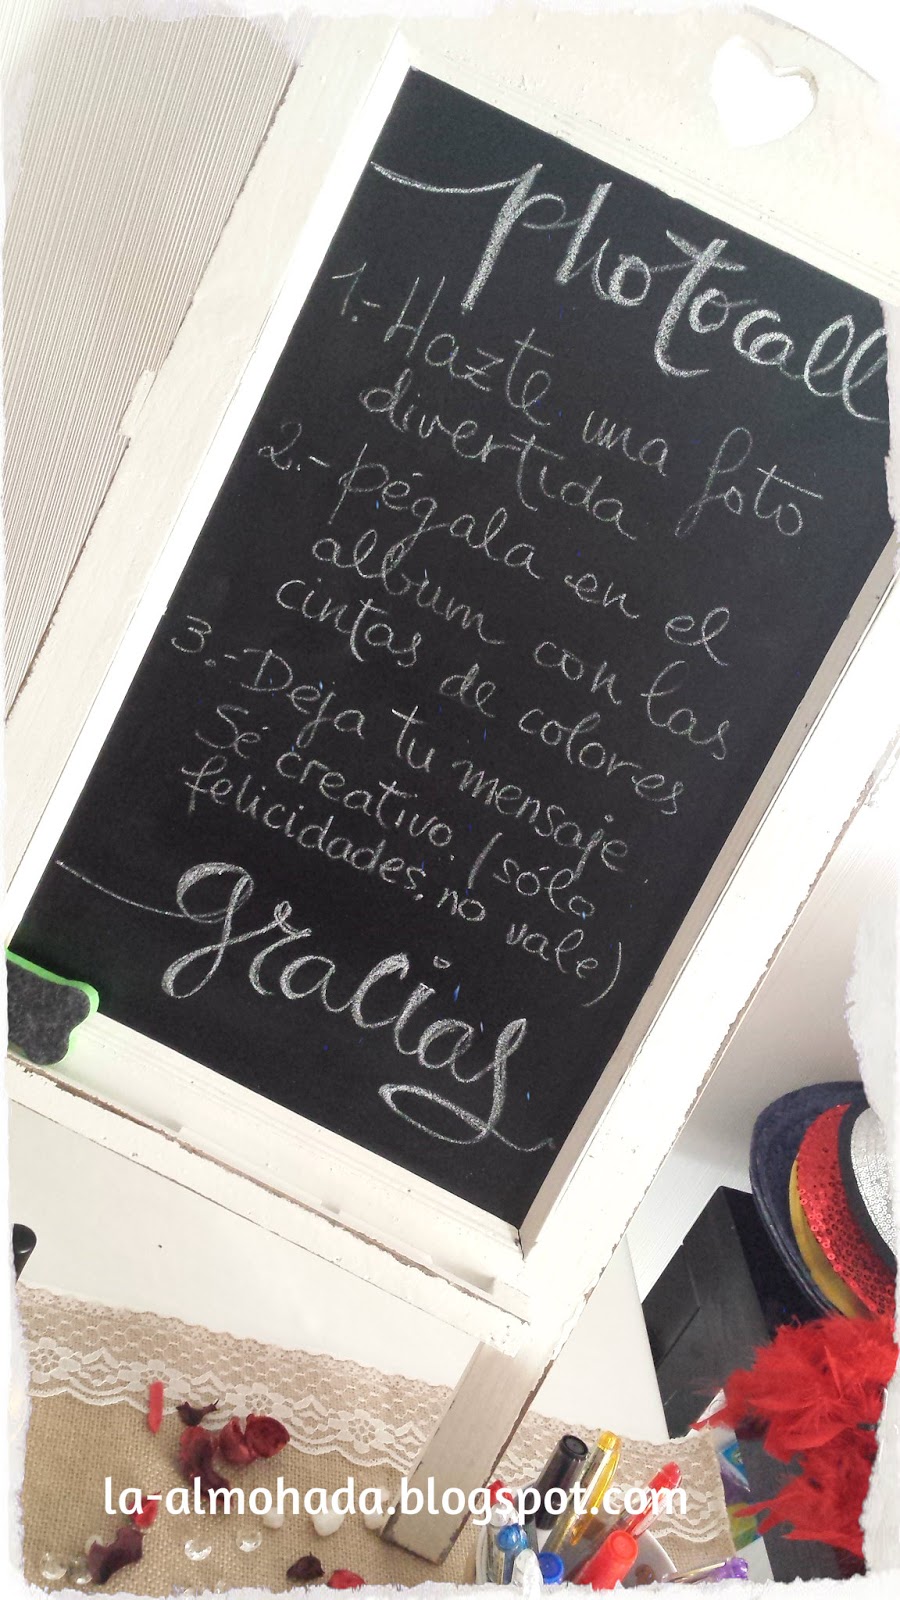 photocall
1.- Hazte una foto
divertida
2.- pégala en el
album con las
cintas de colores
3.- Deja tu mensaje
Sé creativo. (sólo
felicidades, no vale)
gracias
la-almohada.blogspot.com